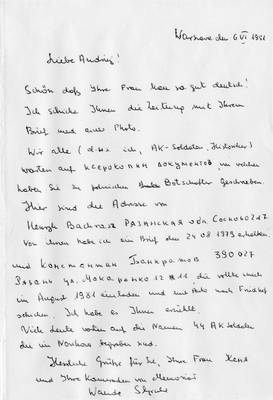 Warschau den 6 VI 1991
Liebe Andrej!
Schön daß Ihre Frau kan so gut deutsch!
Ich schicke Ihnen die Zeitung mit Ihrem
Brief und einer Photo.
Wir alle (d.h. ich, AK-Soldaten, Historiker)
warten auf КСЕРОКОПИИ ДОКУМЕНТОВ, von welchen
haben Sie im polnischen Botschafter geschrieben.
Hier sind die Adresse von
РЯЗАНСКАЯ обл.
Von ihnen habe ich ein Brief den 24 08 1979 erhalten.
und Константин 390027
Рязань ул. 12 # 11 die wollte mich
im August 1981 einladen und mit Auto nach Friedhof
schicken. Ich habe es Ihnen erzählt.
Viele Leute warten auf die Namen 44 AK Soldaten
die in begraben sind.
Herzliche Grüße für Sie, Ihre Frau
und Ihre Kameraden von Memorial
Wanda